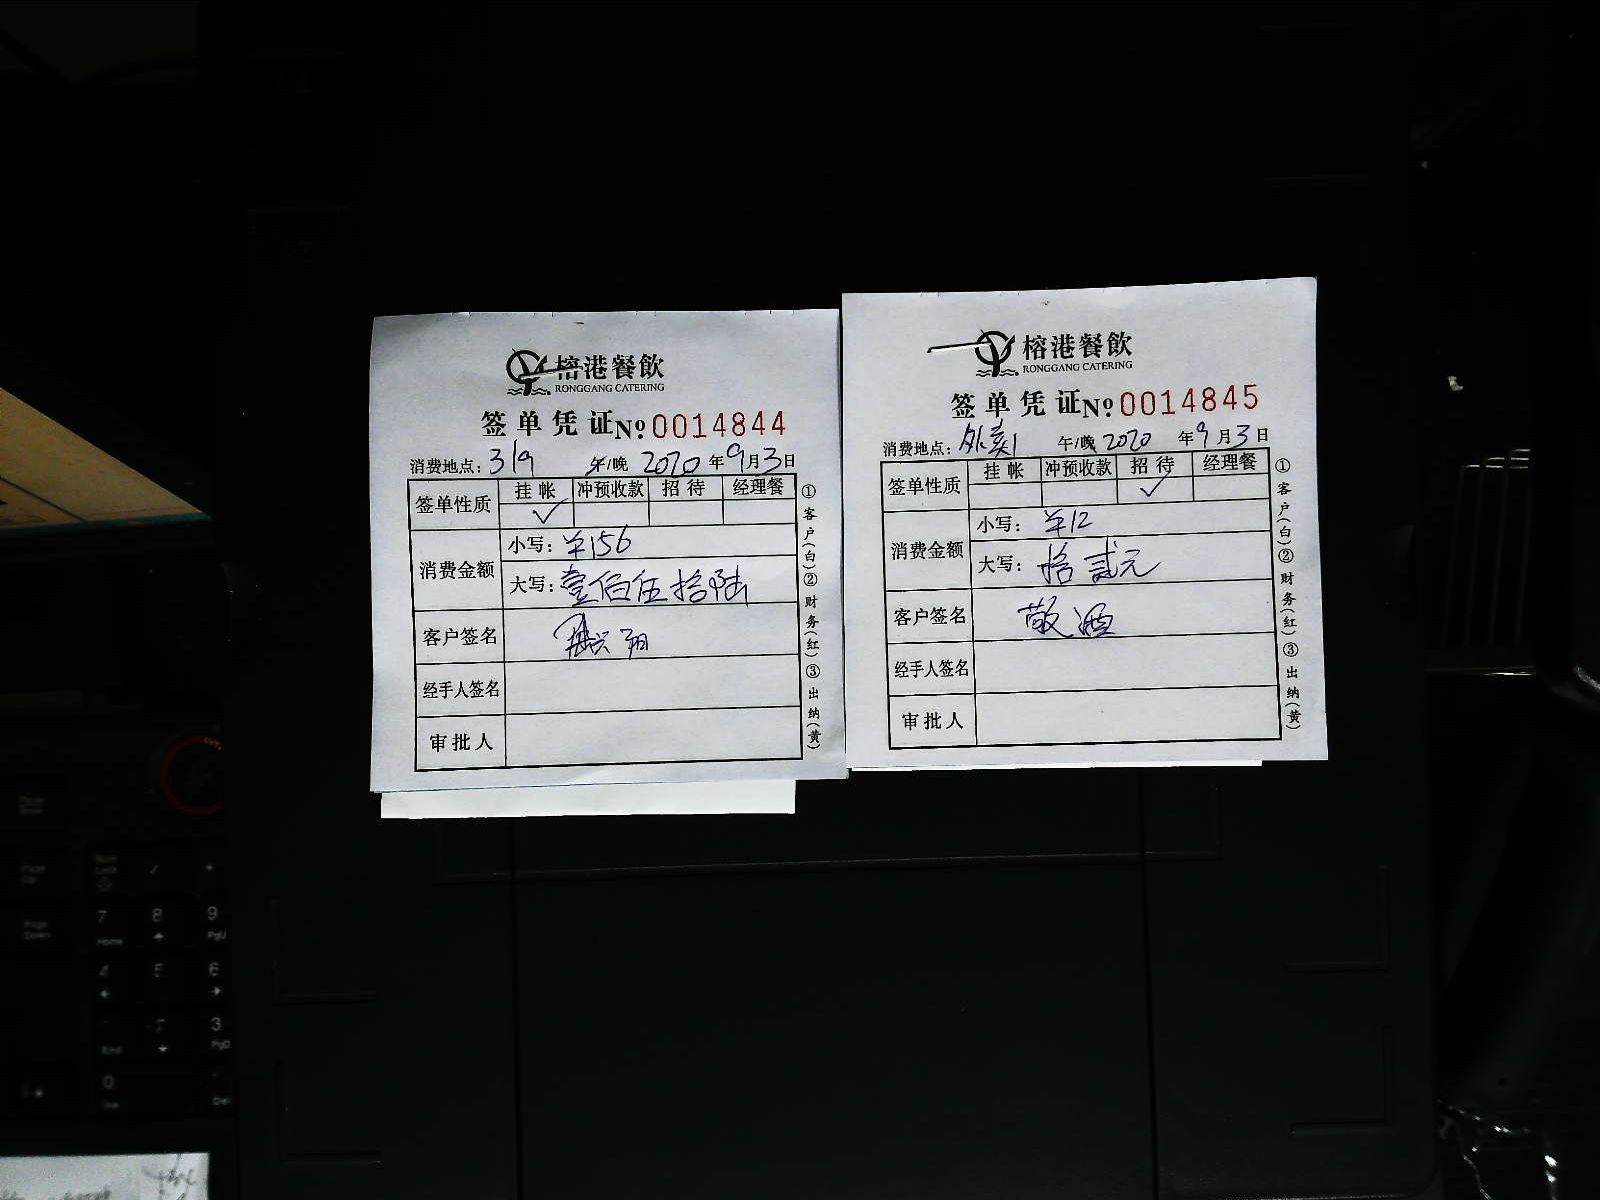 榕港餐飲
RONGGANG CATERING
签单凭证 No 0014844
消费地点: 319 午/晚 2020 年 9 月 3 日
签单性质 挂帐 冲预收款 招待 经理餐
✓
消费金额
小写: ¥156
大写: 壹佰伍拾陆
客户签名
经手人签名
审批人
①客户(白)②财务(红)③出纳(黄)
榕港餐飲
RONGGANG CATERING
签单凭证 No 0014845
消费地点: 外卖1 午/晚 2020 年 9 月 3 日
签单性质 挂帐 冲预收款 招待 经理餐
✓
消费金额
小写: ¥12
大写: 拾贰元
客户签名 敬酒
经手人签名
审批人
①客户(白)②财务(红)③出纳(黄)
7 8 9
Home PgU
4 5 6
3
End PgD
0
Ins Del